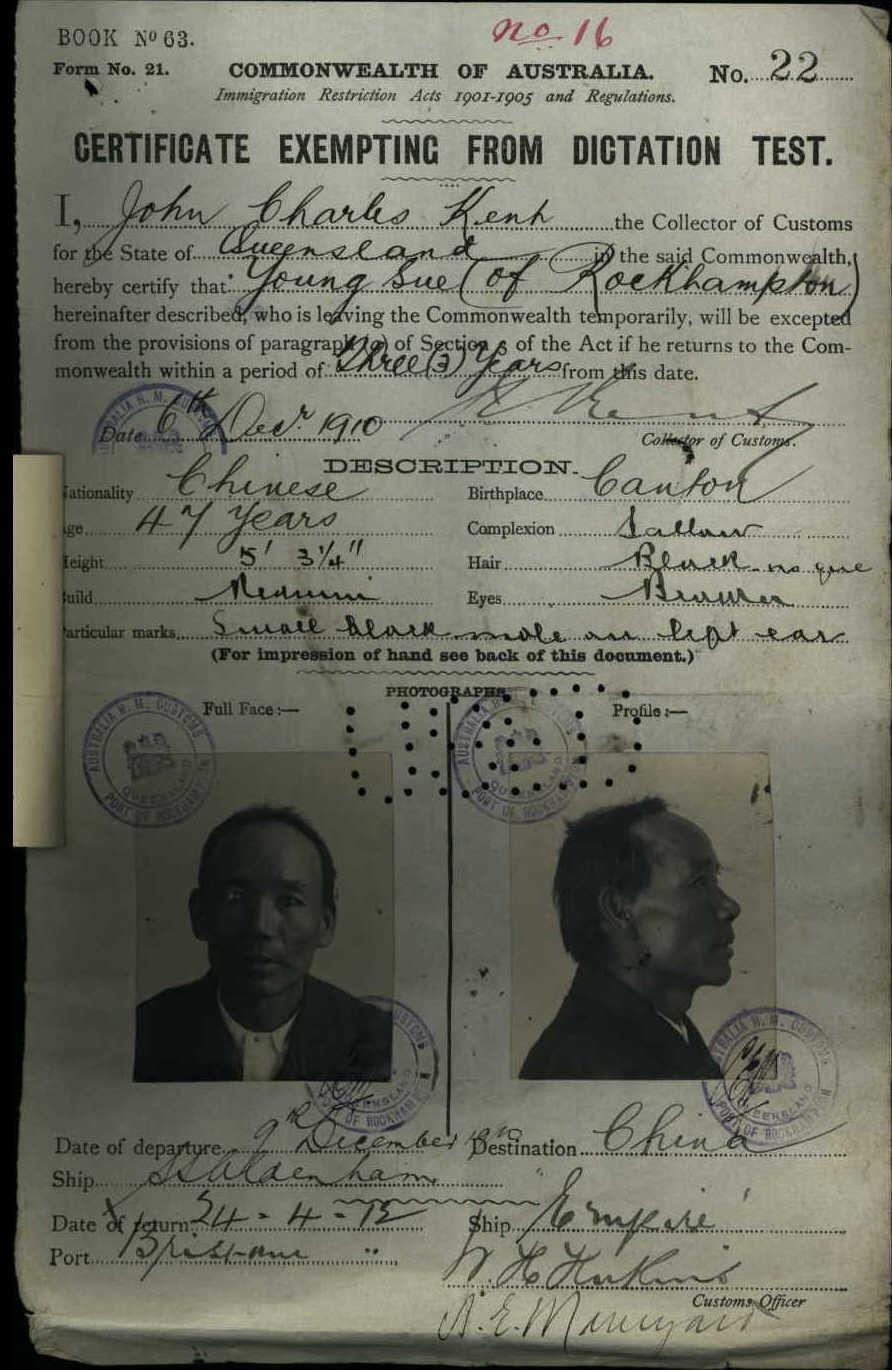 BOOK No 63.
no 16
Form No. 21.
COMMONWEALTH OF AUSTRALIA.
No. 22
Immigration Restriction Acts 1901-1905 and Regulations.
CERTIFICATE EXEMPTING FROM DICTATION TEST.
I, John Charles Kent the Collector of Customs
for the State of Queensland in the said Commonwealth,
hereby certify that Young Sue (of Rockhampton)
hereinafter described, who is leaving the Commonwealth temporarily, will be excepted
from the provisions of paragraph (a) of Section 3 of the Act if he returns to the Com-
monwealth within a period of Three (3) Years from this date.
Date 6th Decr 1910
Kent
Collector of Customs.
DESCRIPTION.
Nationality Chinese Birthplace Canton
Age 47 Years Complexion Sallow
Height 5' 3¼" Hair Black
Build Medium Eyes Brown
Particular marks Small black mole on left ear
(For impression of hand see back of this document.)
PHOTOGRAPHS.
Full Face :— Profile :—
AUSTRALIA H. M. CUSTOMS
QUEENSLAND
PORT OF ROCKHAMPTON
Date of departure 9th December 1910 Destination China
Ship SS Aldenham
Date of return 24-4-12 Ship Empire
Port Brisbane
Customs Officer